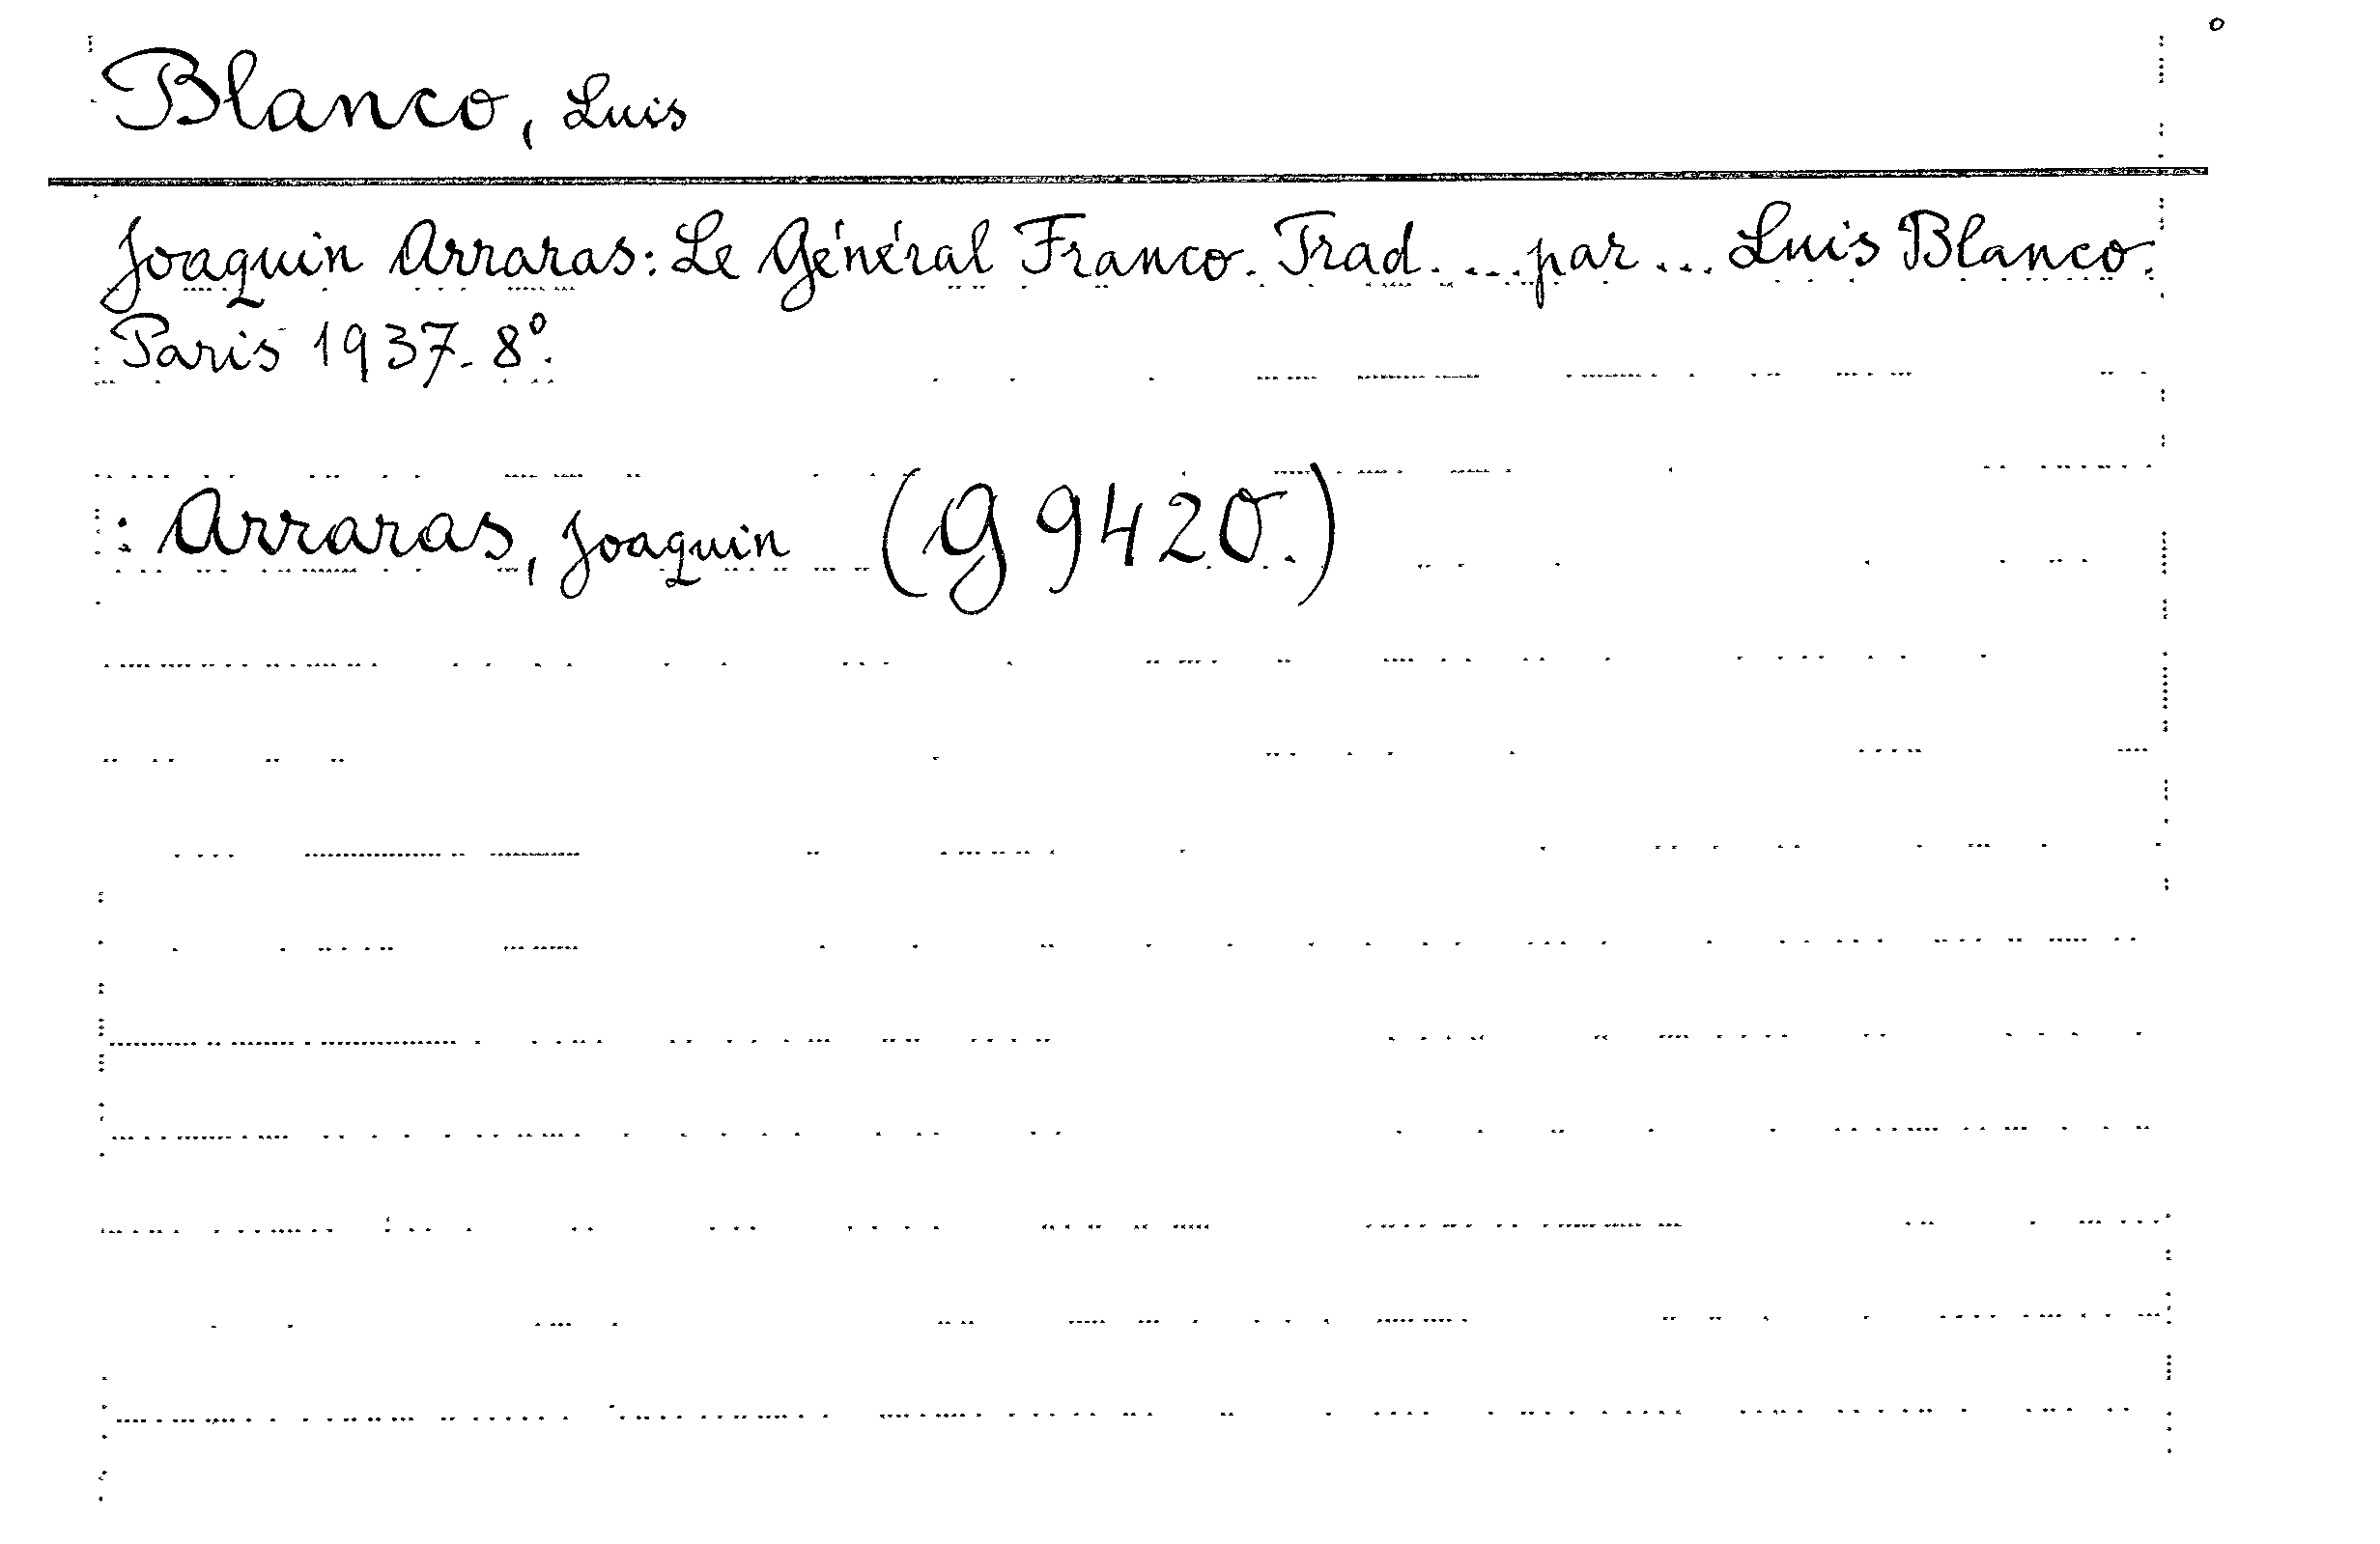 Blanco, Luis
Joaquin Arraras: Le Général Franco. Trad. ... par ... Luis Blanco.
Paris 1937. 8°.
: Arraras, Joaquin (G 9420.)